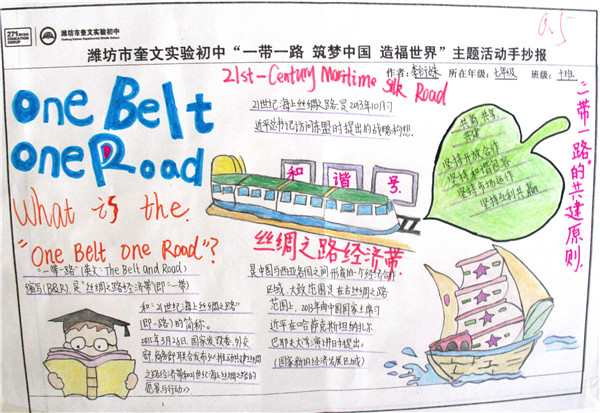 271 EDUCATION GROUP
潍坊市奎文实验初中
潍坊市奎文实验初中“一带一路 筑梦中国 造福世界”主题活动手抄报
作者: 所在年级:七年级 班级:十班
One Belt
One Road
What is the
"One Belt, one Road"?
“一带一路”(英文:The Belt and Road)
缩写(B&R),是“丝绸之路经济带”(即一带)
和“21世纪海上丝绸之路”
(即一路)的简称。
2015年3月28日,国家发改委,外交
部,商务部联合发布了《推动共建丝绸
之路经济带和21世纪海上丝绸之路的
愿景与行动》
21st-Century Maritime Silk Road
21世纪海上丝绸之路是2013年10月
近平总书记访问东盟时提出的战略构想.
和谐号
丝绸之路经济带.
是中国与西亚各国之间形成的一个经济合作
区域,大致范围是在古丝绸之路
范围上,2013年由中国国家主席习
近平在哈萨克斯坦纳扎尔
巴耶夫大学演讲时提出.
(国家新的经济发展区域)
共商共享
共建
坚持开放合作
坚持和谐包容
坚持市场运作
坚持互利共赢
“一带一路”的共建原则.